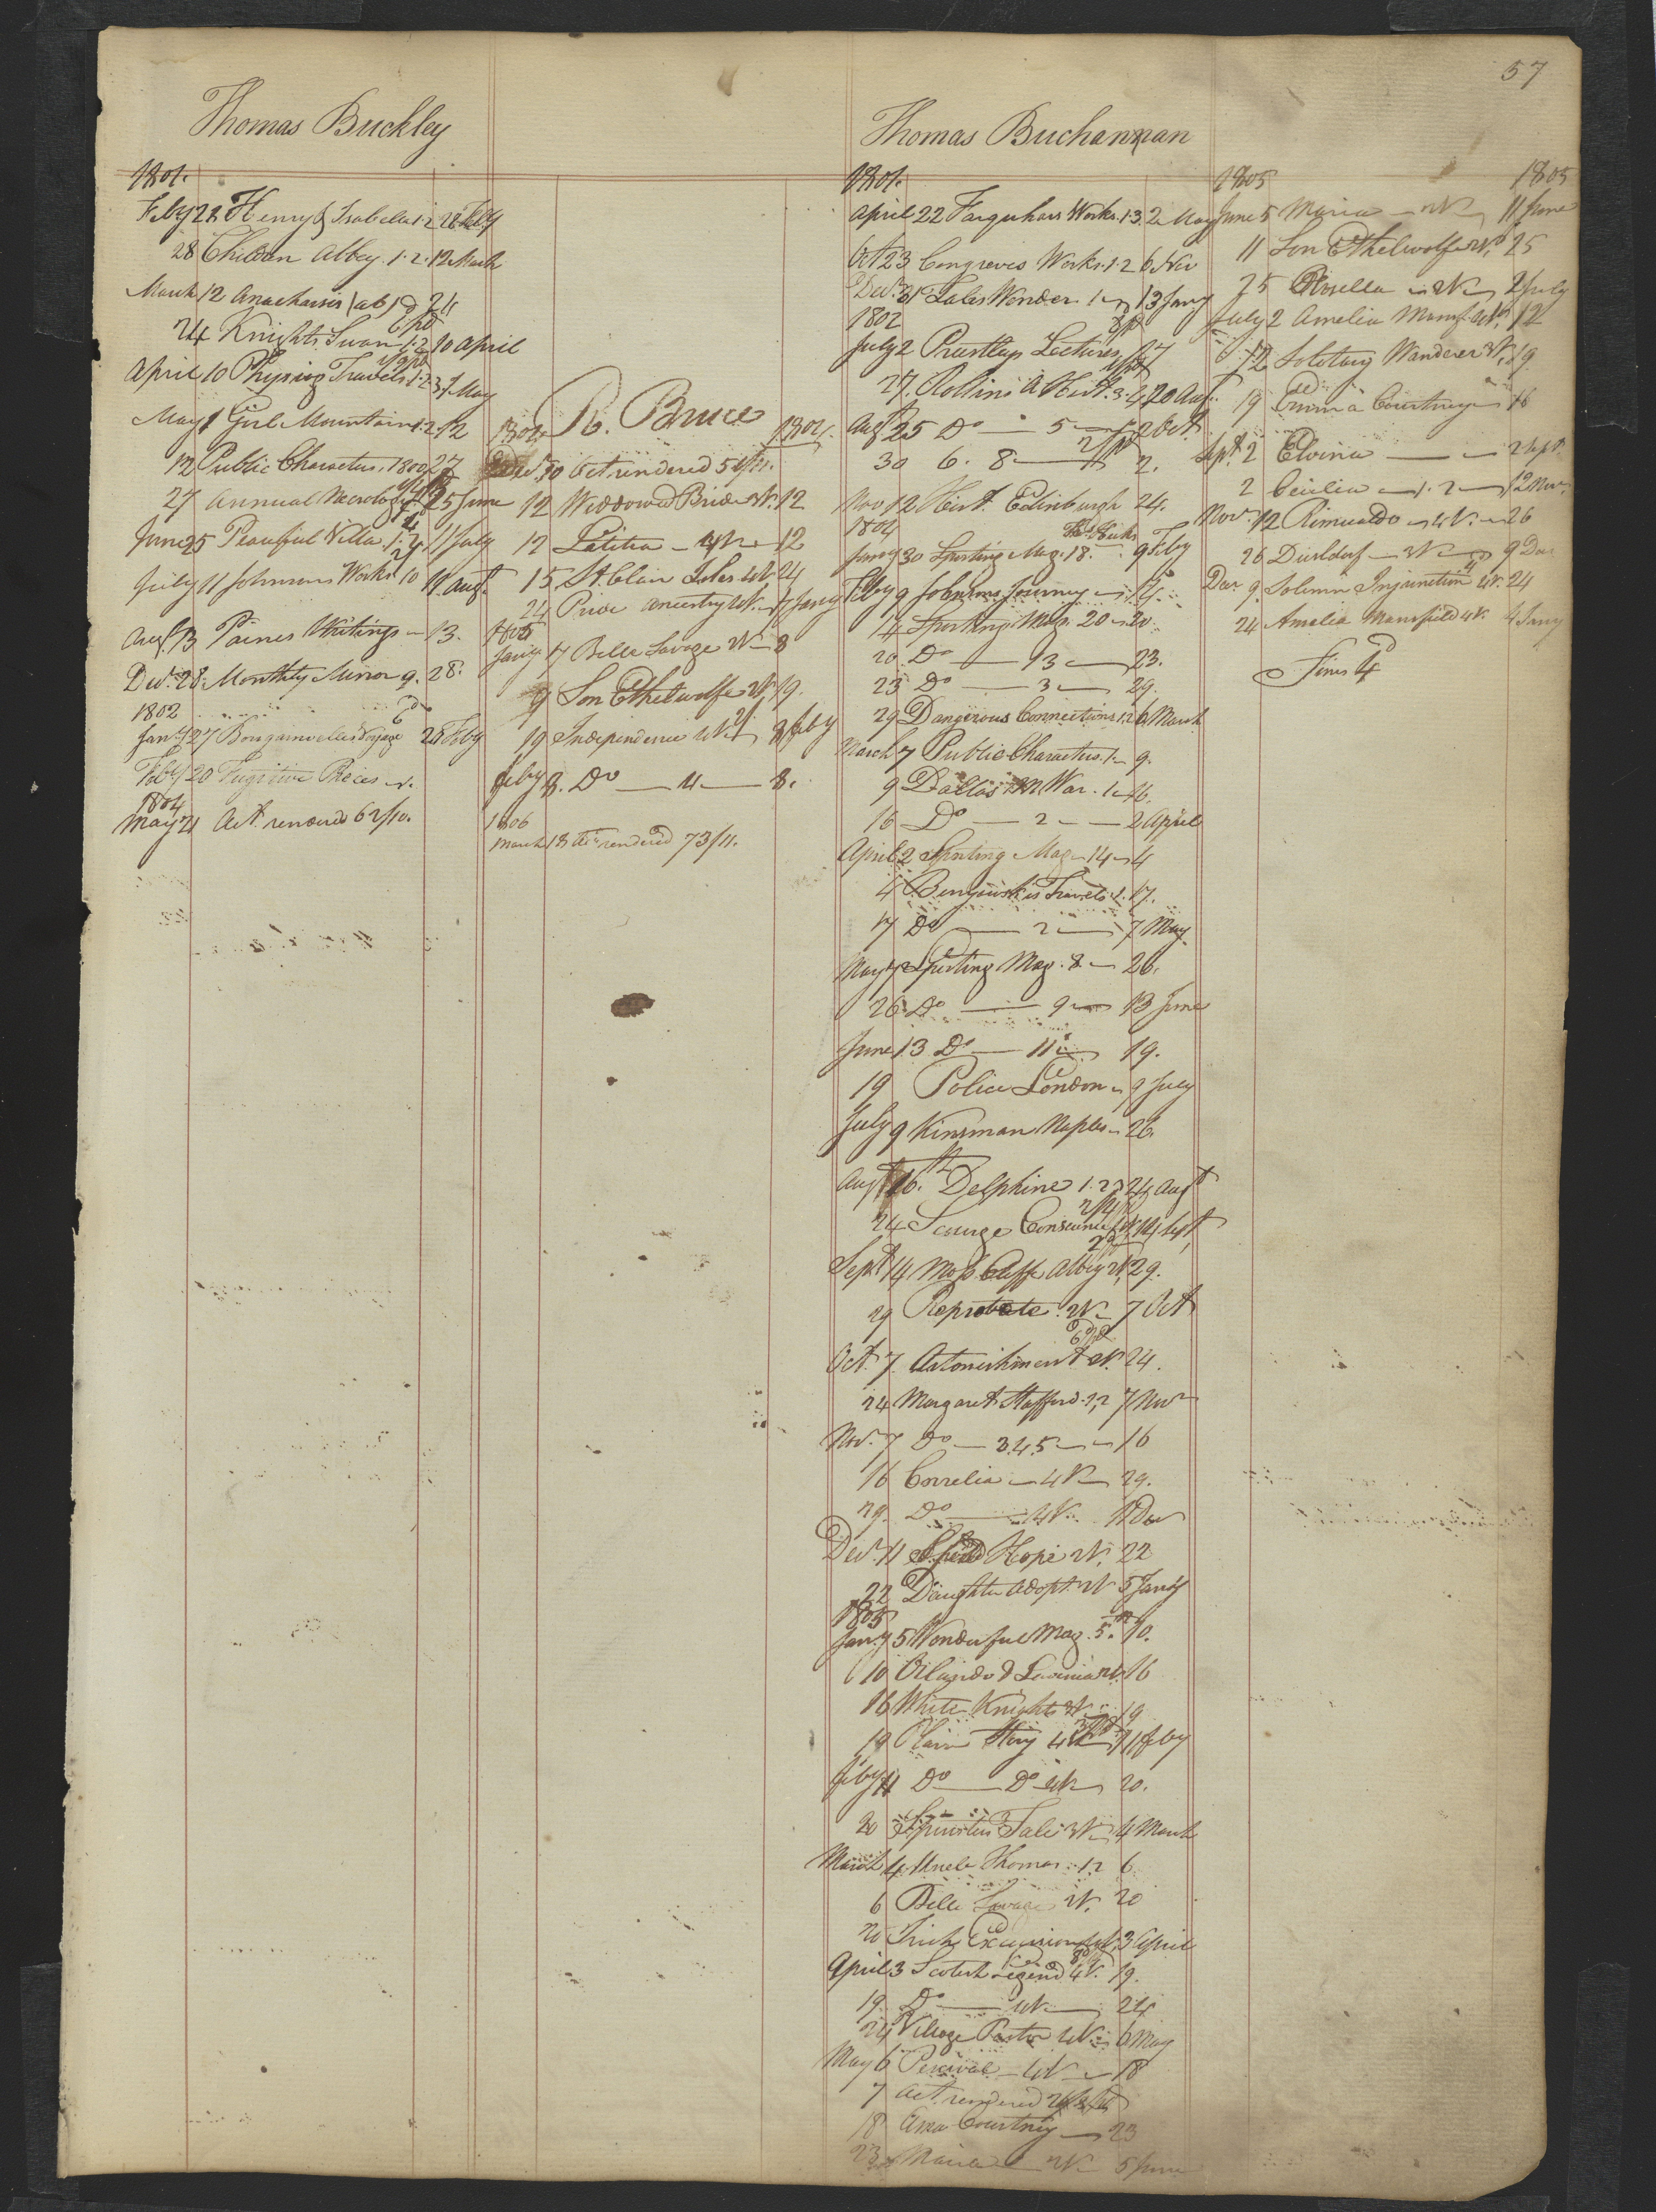 57
Thomas Buckley
1801.
Feby 22 Henry & Isabella 1.2 28 Feby
28 Children Abbey. 1.2. 12 March
March 12 Anacharsis (ab)
24 Knights Swan 1.2 10 April
April 10 Travels 1.2 3 May
May 1 Girl Mountain 1.2 12
12 Public Characters. 1800 27
27 Annual Necrology 25 June
June 25 Peaceful Villa 1.2 11 July
July 11 Johnsons Works 10 11 Augt.
Augt. 13 Paines Writings 13.
Decr. 28. Monthly Mirror 9. 28.
1802
Jany 27 Bougainvilles Voyage 25 Feby
Feby 20 Fugitive Pieces
1804
May 21 Act rendered 62/10.
R. Bruce
1804 1804.
10 Act rendered 51/11.
12 Widdowed Bride 3V. 12
12 Letitia 12
15 St. Clair Isles 4V 24
24 Pride Ancestry 4V. 7 Jany
1805
Jany 7 Belle Savage 2V 8
9 Son Ethelwolfe 2V. 19.
19 Independence 4V 8 Feby
Feby 8. Do 4 8.
1806
March 18 Act rendered 73/11.
Thomas Buchannan
1801.
April 22 Farquhars Works. 1.3. 2 May
Oct 23 Congreves Works. 1.2 6 Nov
Decr. 31 Tales Wonder 1 13 Jany
1802
July 2 Priestleys Lectures 27
27. Rollins A Hist. 3.4 20 Augt.
Augt 25 Do 5 2 Oct
30 6. 8 2.
Nov 12 Hist. Edinburgh 24.
1804
Jany 30 Sporting Mag. 18. 9 Feby
Feby 9 Johnsons Journey 14.
14 Sporting Mag. 20 20.
20. Do 13 23.
23 Do 3 29.
29 Dangerous Connections 1.2 6 March
March 7 Public Characters 1 9.
9 Dallas M War. 1 16.
16 Do 2 2 April
April 2 Sporting Mag 14 4
4 Benyowskis Travels 1. 17.
17 Do 2 7 May
May 7 Sporting Mag. 8 26.
26 Do 9 13 June
June 13 Do 11 19.
19 Police London 9 July
July 9 Kinsman Naples 26.
Augt 16. Delphine 1.2 24 Augt
24 Scourge Conscience 14 Sept
Sept 14 Moss Cliffe Abbey 2V. 29.
29 Reprobate. 2V 7 Oct
Oct. 7 Astonishment 2V. 24.
24 Margaret Stafford 1,2 7 Novr
Nov. 7 Do 3.4.5 16
16 Correlia 4V 29.
29. Do 4V. 11 Decr
Decr. 11 Hope 2V. 22
22 Daughter Adopt. 2V 5 Jany
1805
Jany 5 Wonderful Mag. 5. 10.
10 Orlando & Lavinia 2V. 16
16 White Knights 3V. 19
19 Plain Story 4V 11 Feby
Feby 11 Do Do 4V 20.
20 Spinsters Tale 3V 4 March
March 4 Uncle Thomas. 1.2 6.
6 Belle Savage 2V. 20
20 Irish Excursion 4V. 3 April
April 3 Scotch Legend 4V. 19.
19. Do 4V 24
24 Village Pastor 4V. 6 May
May 6 Percival 4V 18
7 Act rendered
18 Courtney 23
23 Maria 2V 5 June
1805 1805
June 5 Maria 2V 11 June
11 Son Ethelwolfe 2V. 25
25 Rosella 2V 2 July
July 2 Amelia Mansf. 4V. 12
12 Solitary Wanderer 3V. 19.
19 Emma Courtney 16
Sept. 2 Elvina 2 Sept.
2 Cecilia 1.2 12 Nov.
Nov. 12 Rimualdo 4V. 26
26 Dusseldorf 3V 9 Dec
Decr 9. Solemn Injunction 4V. 24
24 Amelia Mansfield 4V. 4 Jany
Fines 4d